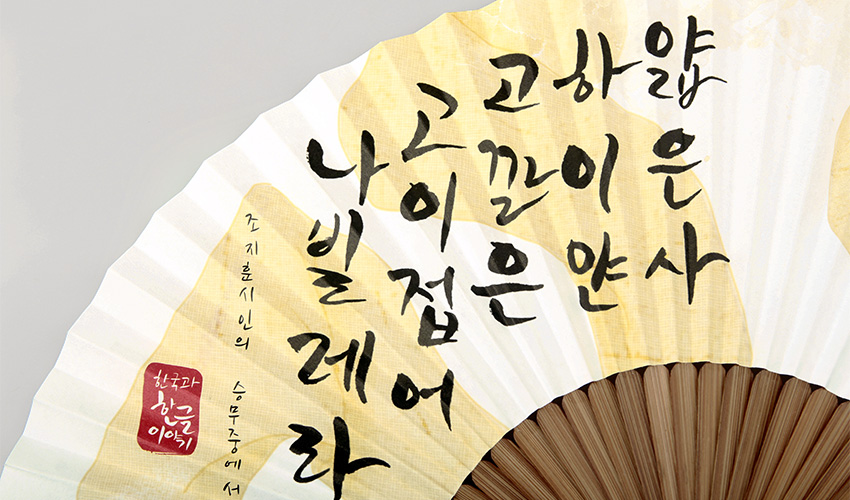 얇은사
하이얀
고깔은
고이접어
나빌레라
조지훈시인의 승무중에서
한국과
한글
이야기